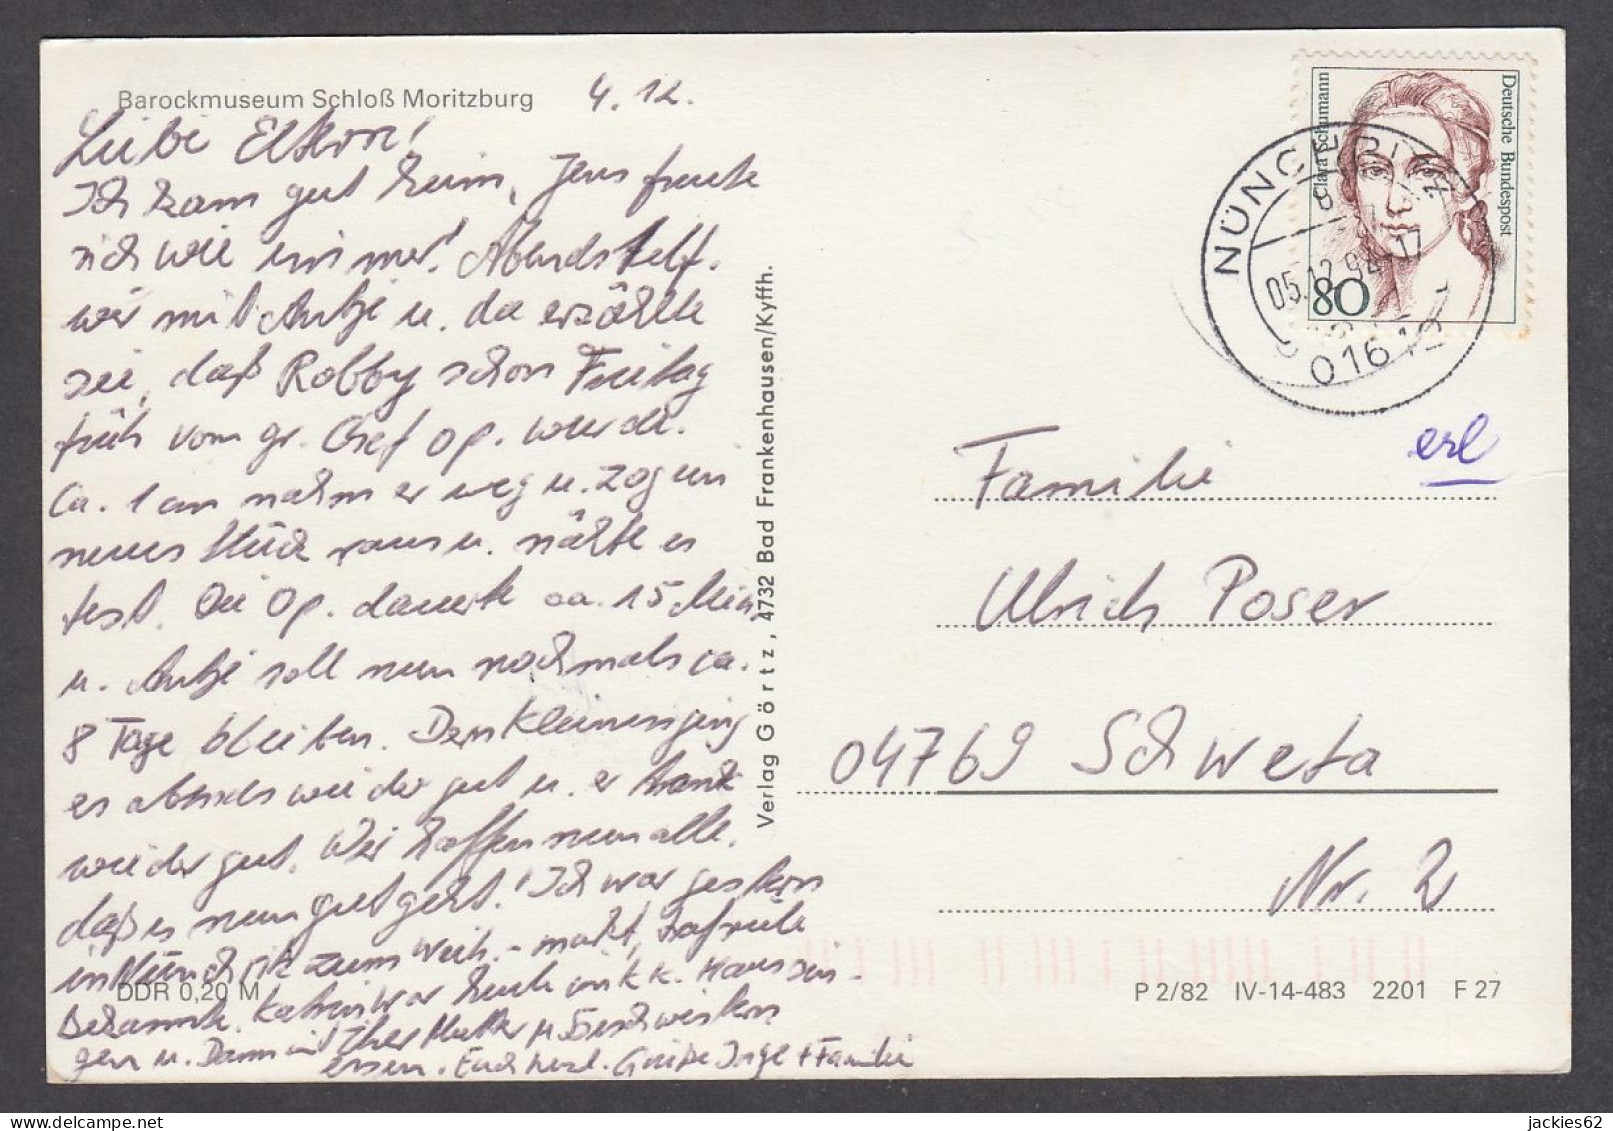 Barockmuseum Schloß Moritzburg
4.12.
Liebe Eltern!
Ich kam gut heim, Jens freute
sich wie immer! Abends telef.
wir mit Antje u. da erzählte
sie, daß Robby schon Freitag
früh vom gr. Chef op. wurde.
Ca. 1 cm nahm er weg u. zog ein
neues Stück raus u. nähte es
fest. Die Op. dauerte ca. 15 Min.
u. Antje soll nun nochmals ca.
8 Tage bleiben. Dem Kleinen ging
es abends wieder gut u. er trank
wieder gut. Wir hoffen nun alle,
daß es nun gut geht! Ich war gestern
in Nünchritz zum Weih.-markt, traf viele
Bekannte. Katrin war heute in K. K. Haus
gen u. Dann mit Ihrer Mutter u. Geschwistern
essen. Euch herzl. Grüße Inge + Familie
DDR 0,20 M
Verlag Görtz, 4732 Bad Frankenhausen/Kyffh.
Deutsche Bundespost
Clara Schumann
80
NÜNCHRITZ
05.12.94-17
01612
erl
Familie
Ulrich Poser
04769 Schweta
Nr. 2
P 2/82 IV-14-483 2201 F 27
jackies62